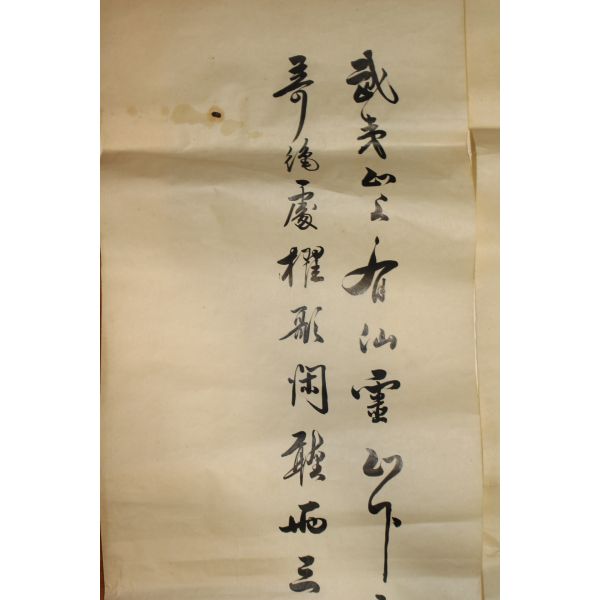 武夷山上有仙靈山下
奇絶處櫂歌閑聽兩三